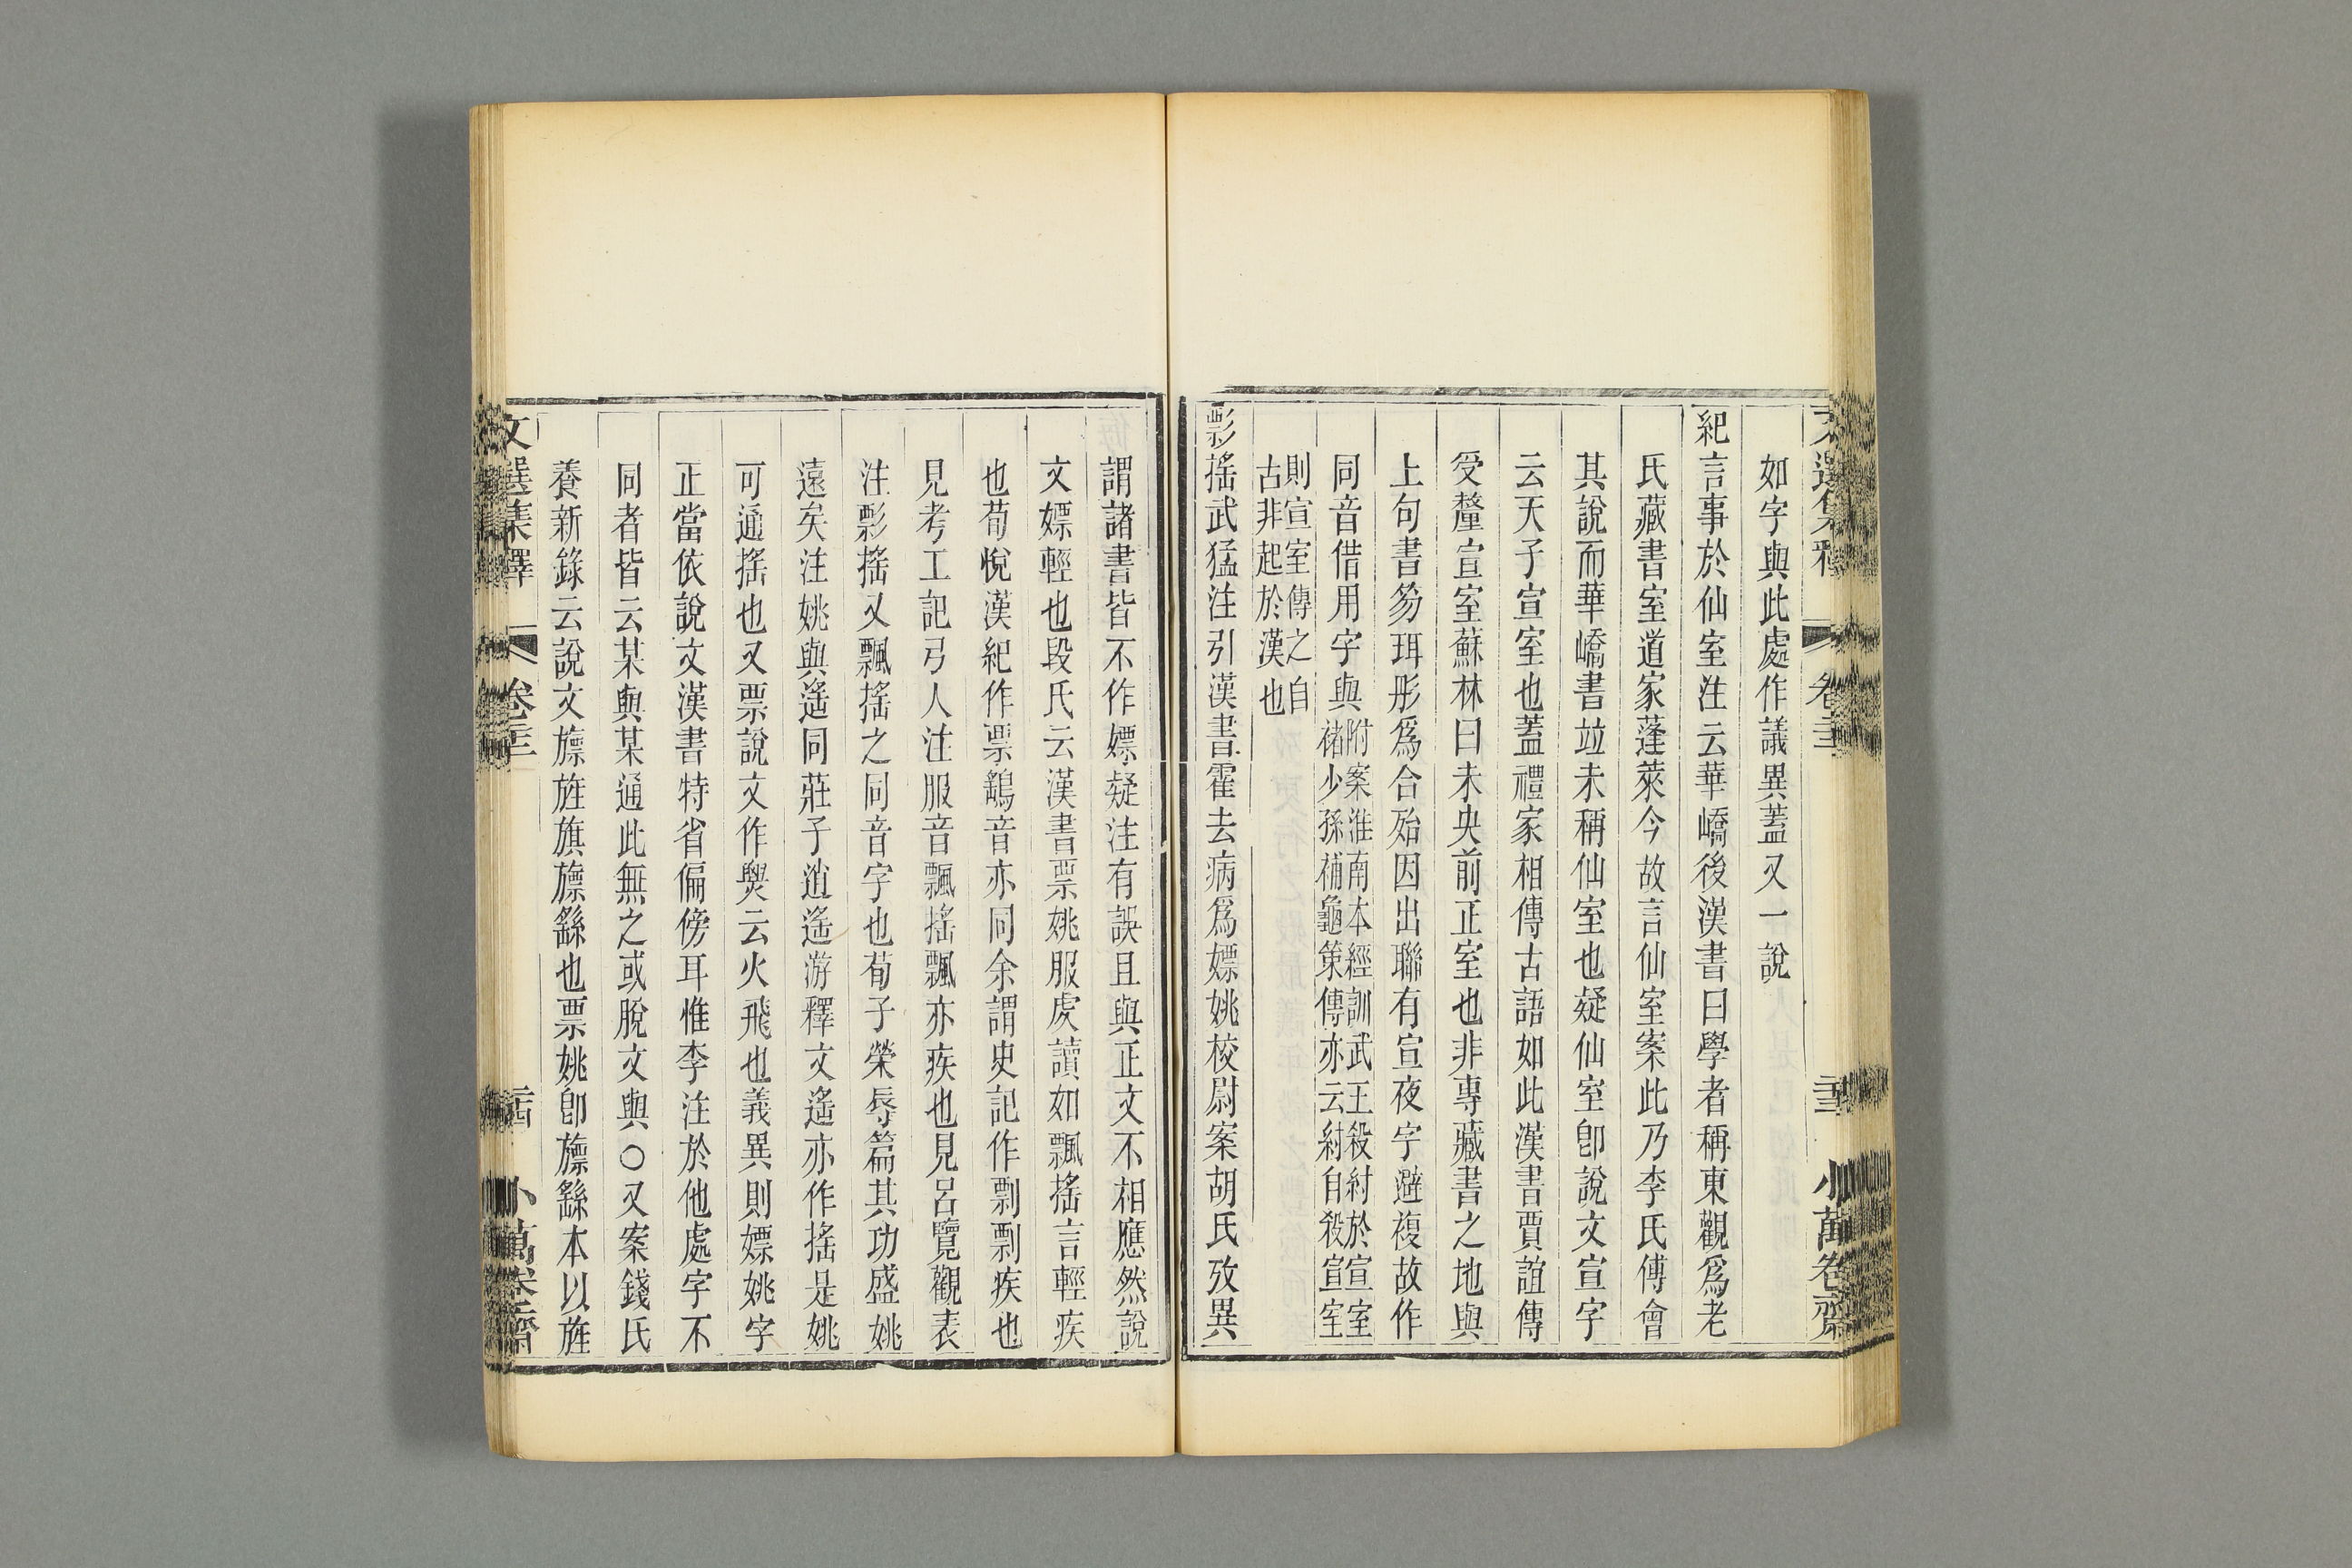 如字與此處作議異蓋又一說
紀言事於仙室注云華嶠後漢書曰學者稱東觀爲老
氏藏書室道家蓬萊今故言仙室案此乃李氏傅會
其說而華嶠書竝未稱仙室也疑仙室卽說文宣字
云天子宣室也蓋禮家相傳古語如此漢書賈誼傳
受釐宣室蘇林曰未央前正室也非專藏書之地與
上句書笏珥彤爲合殆因出聯有宣夜字避複故作
同音借用字與
附案淮南本經訓武王殺紂於宣室
褚少孫補龜策傳亦云紂自殺宣室
則宣室傳之自
古非起於漢也
彯搖武猛注引漢書霍去病爲嫖姚校尉案胡氏攷異
謂諸書皆不作嫖疑注有誤且與正文不相應然說
文嫖輕也段氏云漢書票姚服虔讀如飄搖言輕疾
也荀悅漢紀作票鷂音亦同余謂史記作剽剽疾也
見考工記弓人注服音飄搖飄亦疾也見呂覽觀表
注彯搖又飄搖之同音字也荀子榮辱篇其功盛姚
遠矣注姚與遙同莊子逍遙游釋文遙亦作搖是姚
可通搖也又票說文作㷠云火飛也義異則嫖姚字
正當依說文漢書特省偏傍耳惟李注於他處字不
同者皆云某與某通此無之或脫文與○又案錢氏
養新錄云說文旚旌旗旚繇也票姚卽旚繇本以旌
文選集釋 卷二十三 二十三 小萬卷齋
文選集釋 卷二十三 二十四 小萬卷齋